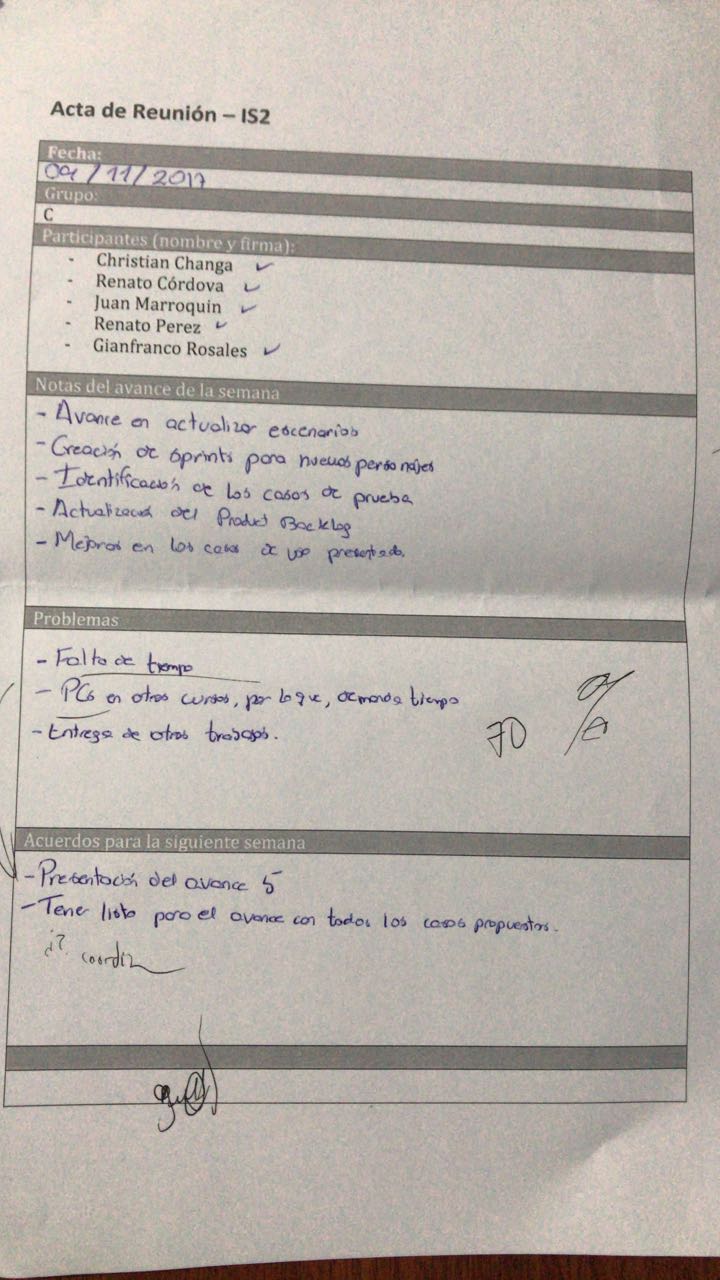 Acta de Reunión – IS2
Fecha:
09/11/2017
Grupo:
C
Participantes (nombre y firma):
- Christian Changa ✓
- Renato Córdova ✓
- Juan Marroquin ✓
- Renato Perez ✓
- Gianfranco Rosales ✓
Notas del avance de la semana
- Avance en actualizar escenarios
- Creación de sprints para nuevos personajes
- Identificación de los casos de prueba
- Actualización del Product Backlog
- Mejoras en los casos de uso presentado.
Problemas
- Falta de tiempo
- PCs en otros cursos, por lo que, demanda tiempo
- Entrega de otros trabajos.
70 %
Acuerdos para la siguiente semana
- Presentación del avance 5
- Tener listo para el avance con todos los casos propuestos.
¿?